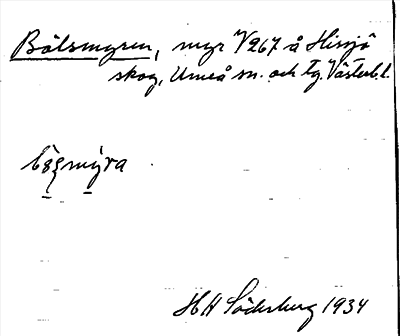 Bälsmyren, myr V267 å Hissjö
skog, Umeå sn. och tg. Västerb. l.
HH Söderberg 1934